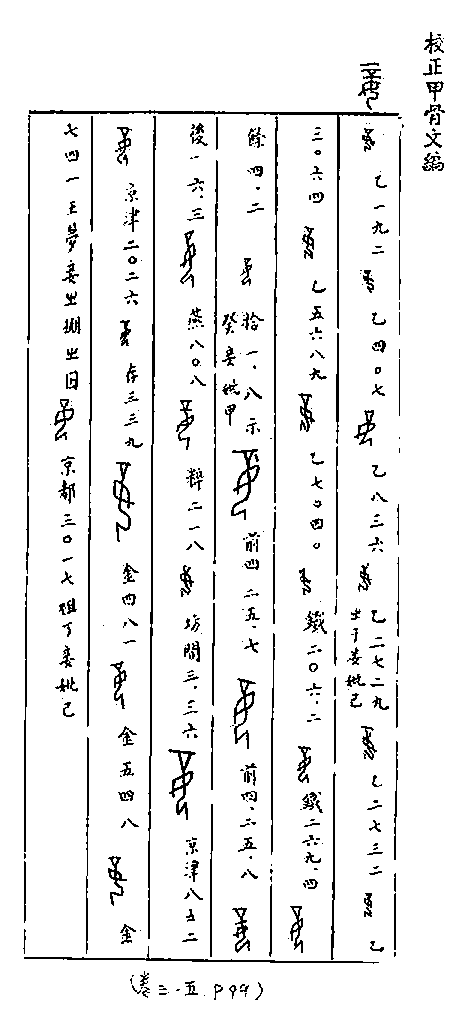 校正甲骨文編
乙一九二 乙四〇七 乙八三六 乙二七二九 㞢于妾妣己 乙二七三二 乙
三〇六四 乙五六八九 乙七〇四〇 鐵二〇六.二 鐵二六九.四
餘四.二 拾一.八 示癸妾妣甲 前四.二五.七 前四.二五.八
後一六.三 燕八〇八 粹二一八 坊間三.三六 京津八五二
京津二〇二六 存三三九 金四八一 金五四八 金
七四一 王夢妾㞢 㞢 京都三〇一七 祖丁妾妣己
(卷三.五 P99)